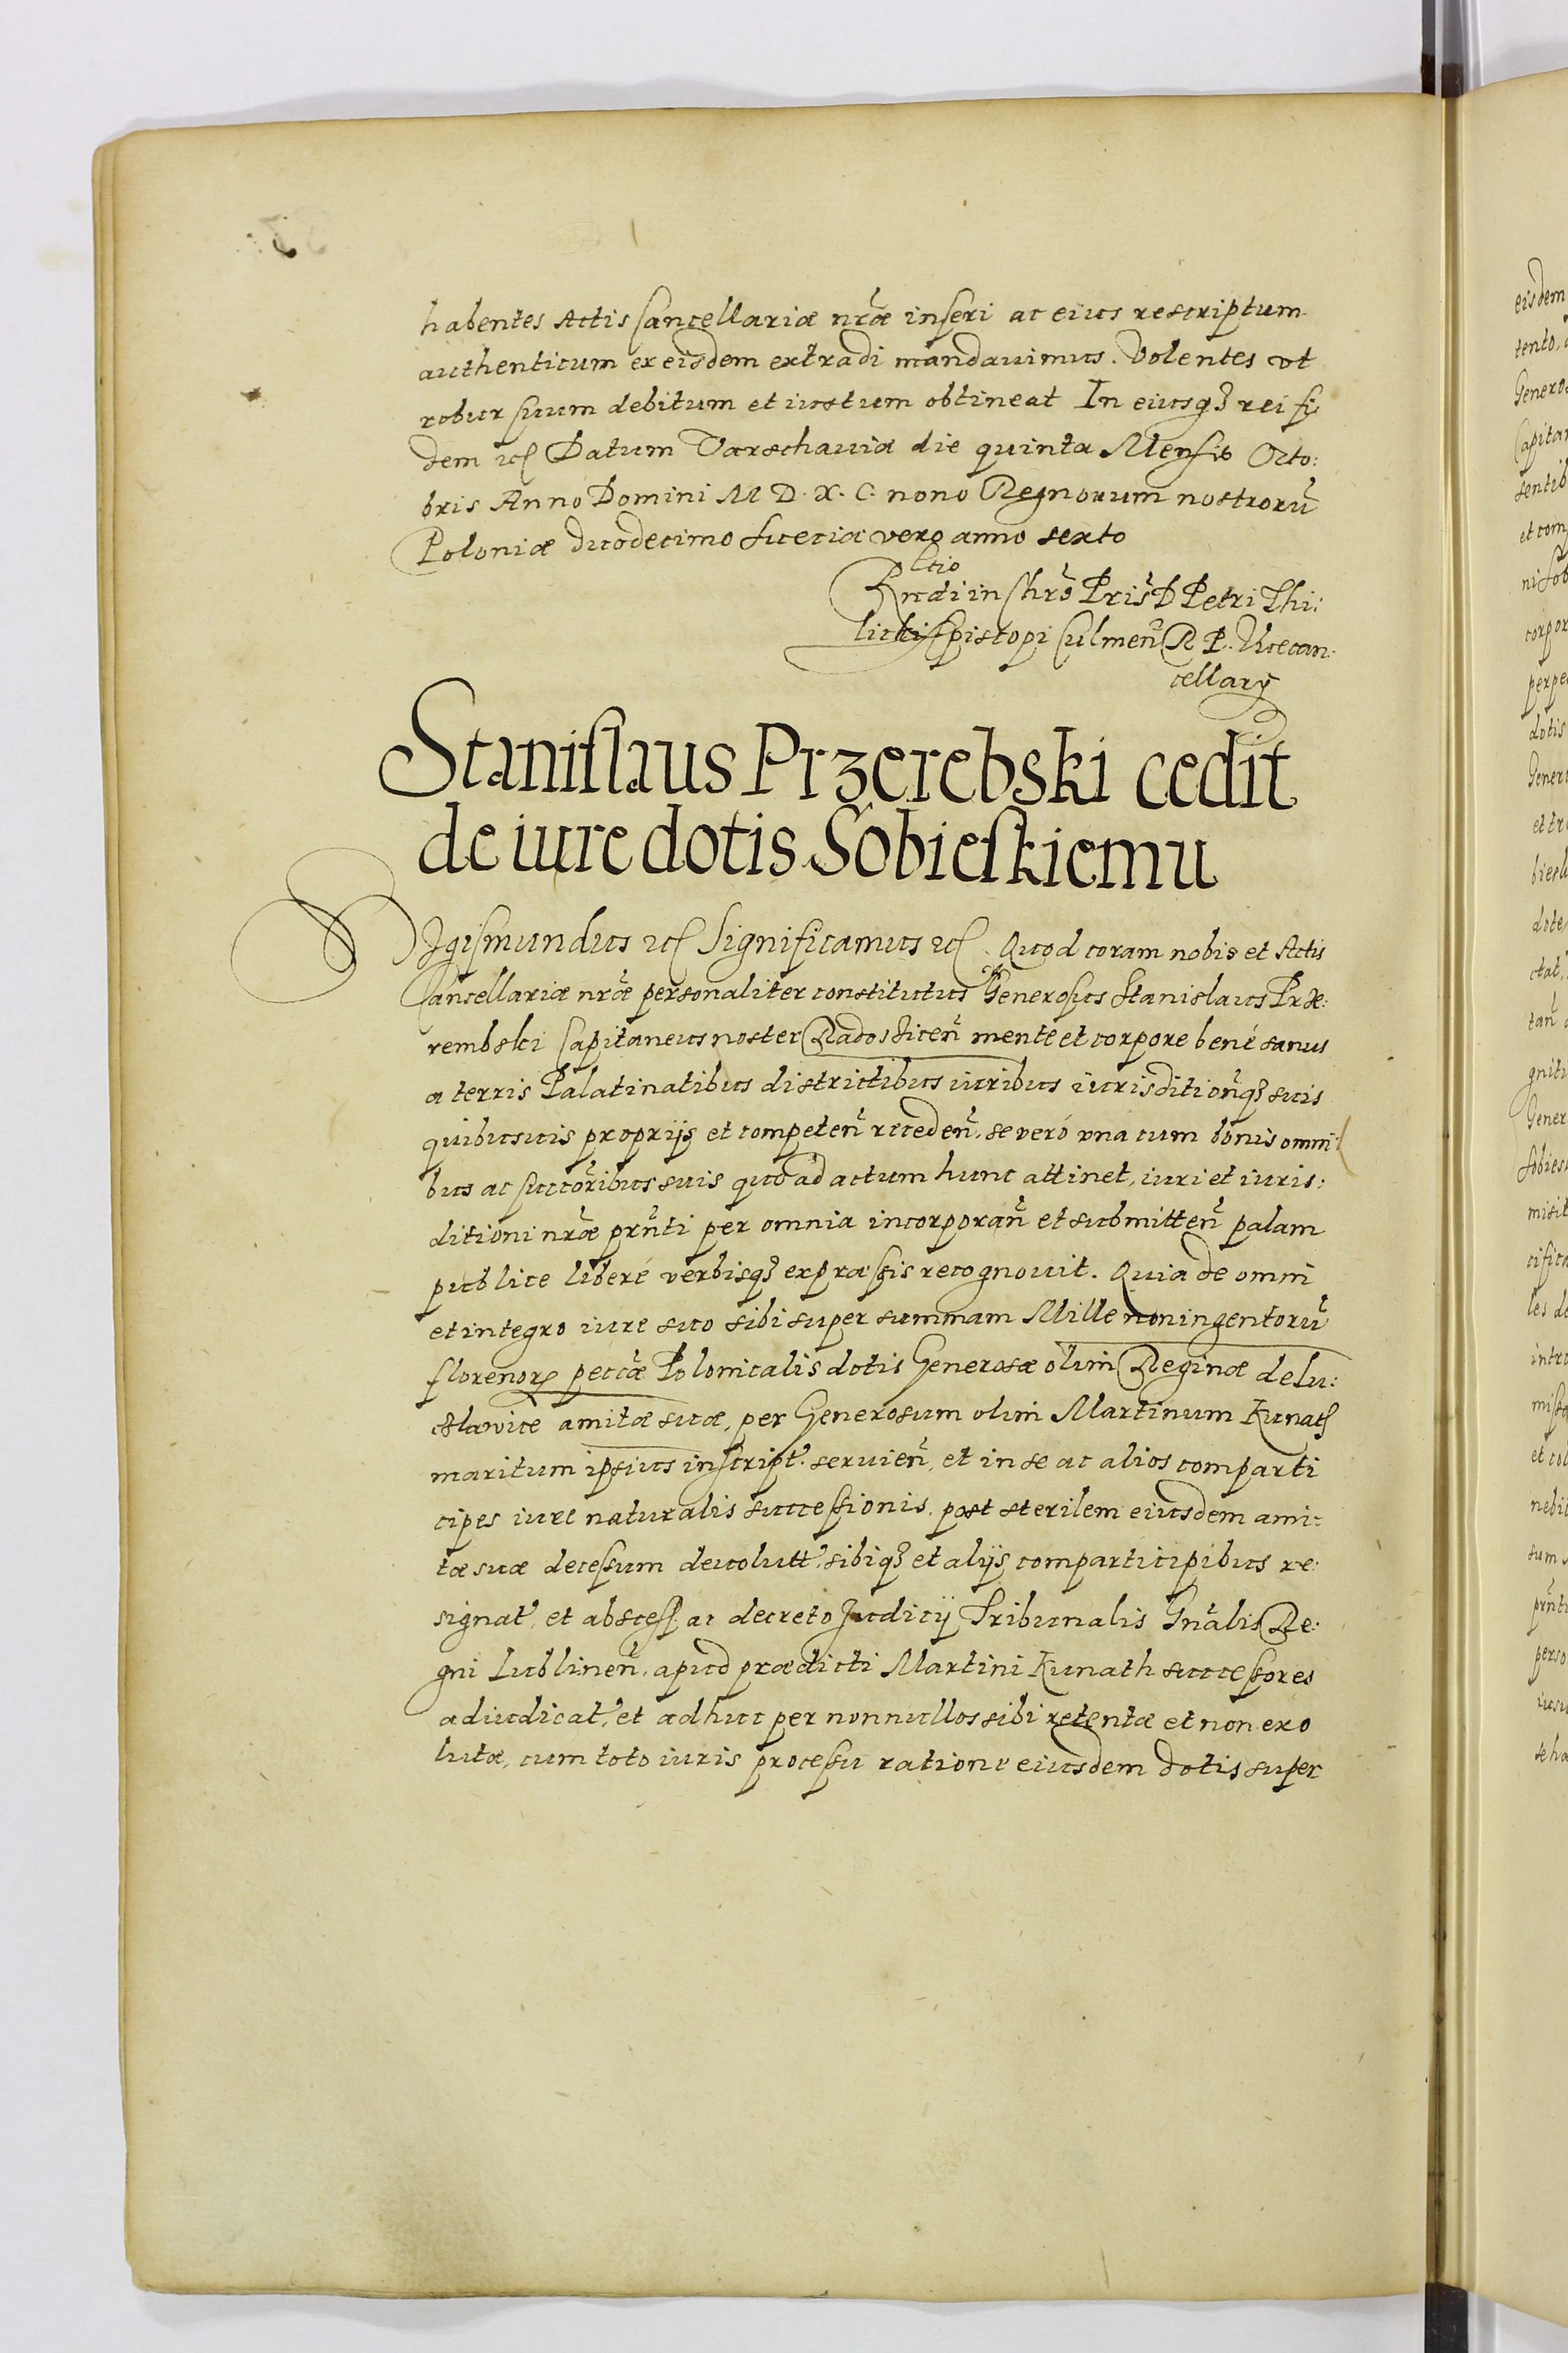 habentes Actis Cancellariæ nr̃æ inseri ac eius rescriptum
authenticum ex eisdem extradi mandauimus. Volentes vt
robur suum debitum et iustum obtineat In eiusq3 rei fi
dem etc Datum Varschauiæ die quinta Mensis Octo:
bris Anno Domini M D. X. C. nono Regnorum nostrorũ
Poloniæ duodecimo Sueciæ vero anno sexto
Rltio
Rndi in Chrõ Pris̃ D Petri Thi:
licki Episcopi Culmeñ R P. Vicecan:
cellarÿ
Stanislaus Przerebski cedit
de iure dotis Sobieskiemu
Sigismundus etc Significamus etc. Quod coram nobis et Actis
Cancellariæ nr̃æ personaliter constitutus Generosus Stanislaus Præ:
rembski Capitaneus noster Radossiceñ mente et corpore bené sanus
a terris Palatinatibus districtibus iuribus iurisditioñq3 suis
quibusuis proprijs et competeñ recedeñ, se veró vna cum bonis omni
bus ac succor̃ibus suis quo ad actum hunc attinet, iuri et iuris:
ditioni nr̃æ prñti per omnia incorporañ et submitteñ palam
publice liberé verbisq3 expræssis recognouit. Quia de omni
et integro iure suo sibi super summam Mille noningentorũ
florenor peccæ Polonicalis dotis Generosæ olim Reginæ de Lu:
cslawice amitæ suæ, per Generosum olim Martinum Kunath
maritum ipsius inscript. seruieñ, et in se ac alios comparti
cipes iure naturalis successionis post sterilem eiusdem ami:
tæ suæ decessum deuolutt, sibiq3 et alijs comparticipibus re:
signat, et abscess. ac decreto Judicij Tribunalis Gnãlis Re:
gni Lublineñ, apud prædicti Martini Kunath successores
adiudicat, et adhuc per nonnullos sibi retentæ et non exo
lutæ, cum toto iuris processu ratione eiusdem dotis super